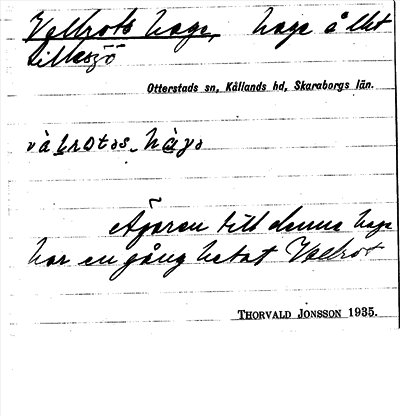 Valbrots hage, hage å Utt
Lilleszö
Otterstads sn, Kållands hd, Skaraborgs län.
hàgə
Ägaren till denna hage
har en gång hetat Valbrot
THORVALD JONSSON 1935.